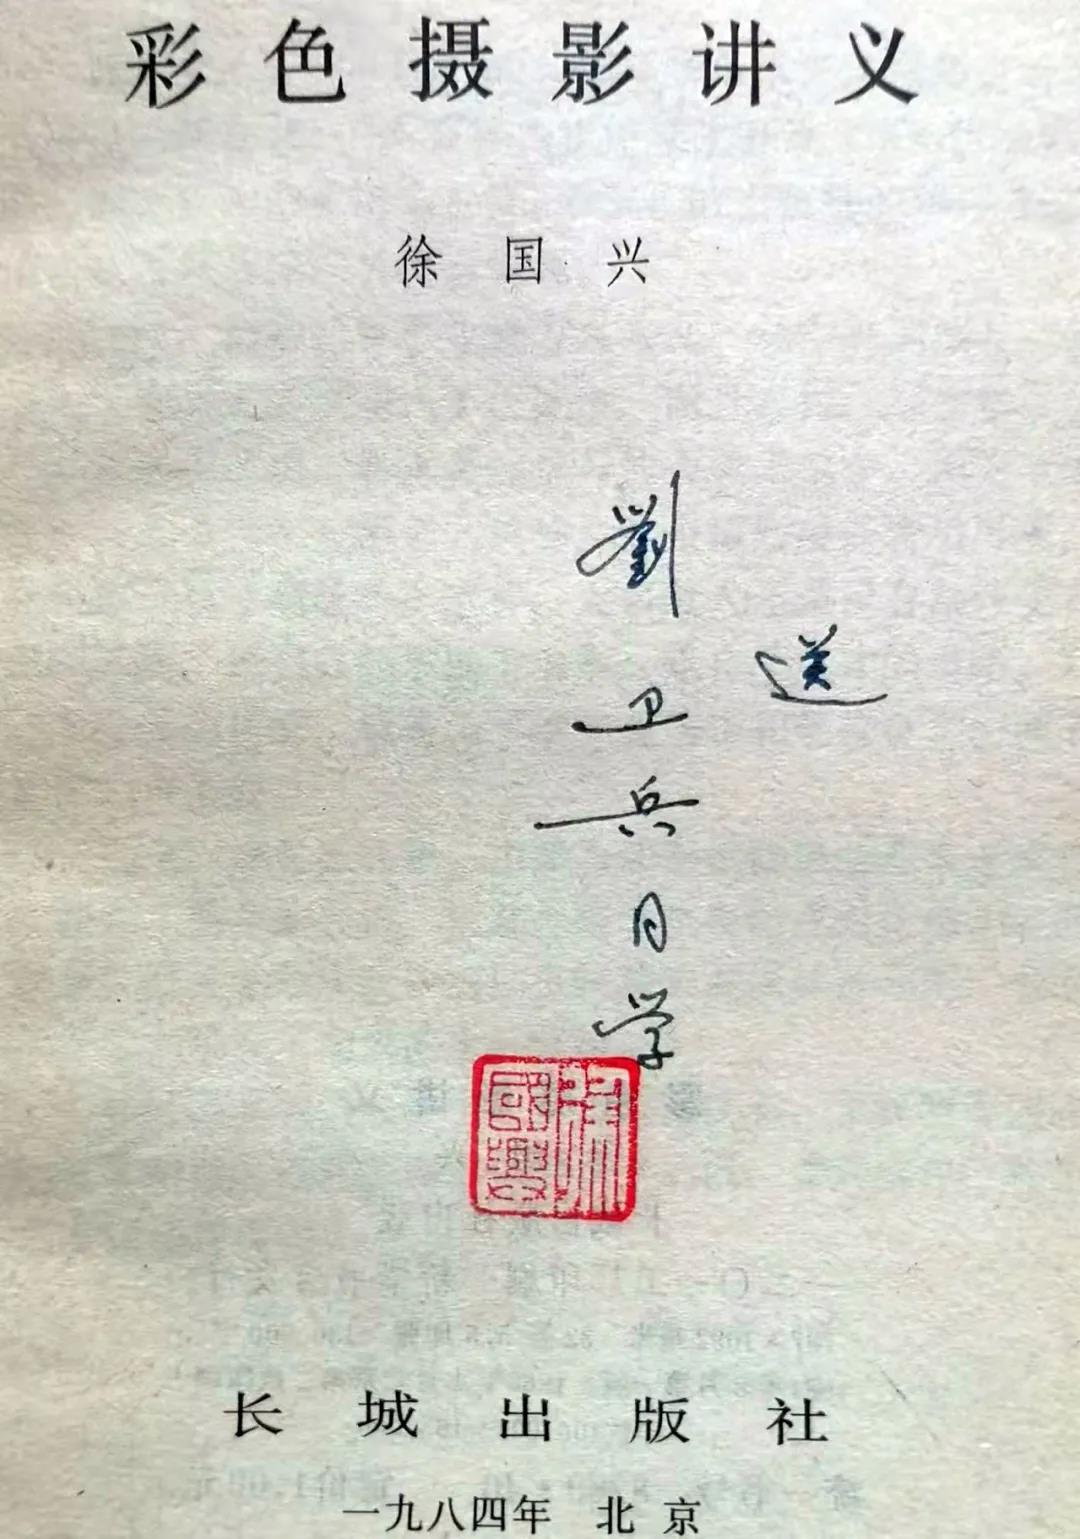 彩色摄影讲义
徐国兴
送
劉卫兵同学
徐國興
长城出版社
一九八四年 北京